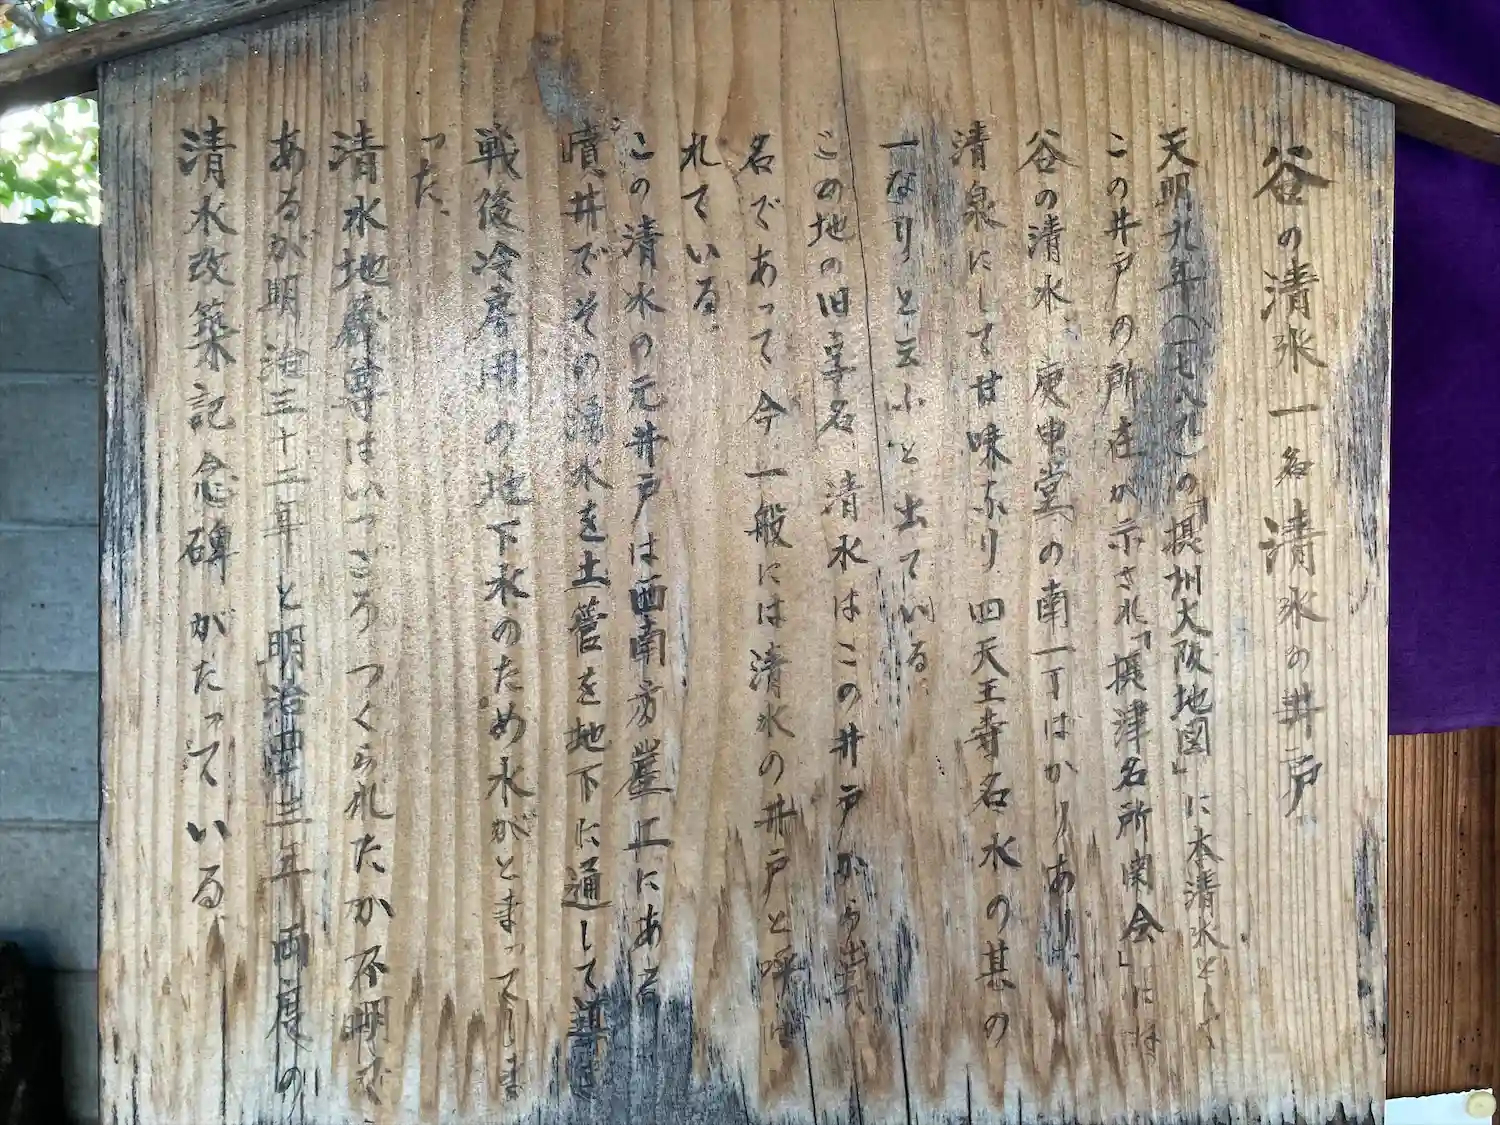 谷の清水 一名 清水の井戸
天明九年(一七八九)の「摂州大阪地図」に本清水として
この井戸の所在が示され「摂津名所図会」には
谷の清水 庚申堂の南一丁ばかりあり
清泉にして甘味なり 四天王寺名水の其の
一なりと云ふと出ている。
この地の旧字名 清水はこの井戸から出た
名であって今一般には清水の井戸と呼ば
れている。
この清水の元井戸は西南方崖工にある
噴井でその湧水を土管を地下に通して導き
戦後冷房用の地下水のため水がとまってしま
った。
清水地蔵尊はいつごろつくられたか不明で
あるが明治三十三年と明治四十三年両度の
清水改築記念碑がたっている。